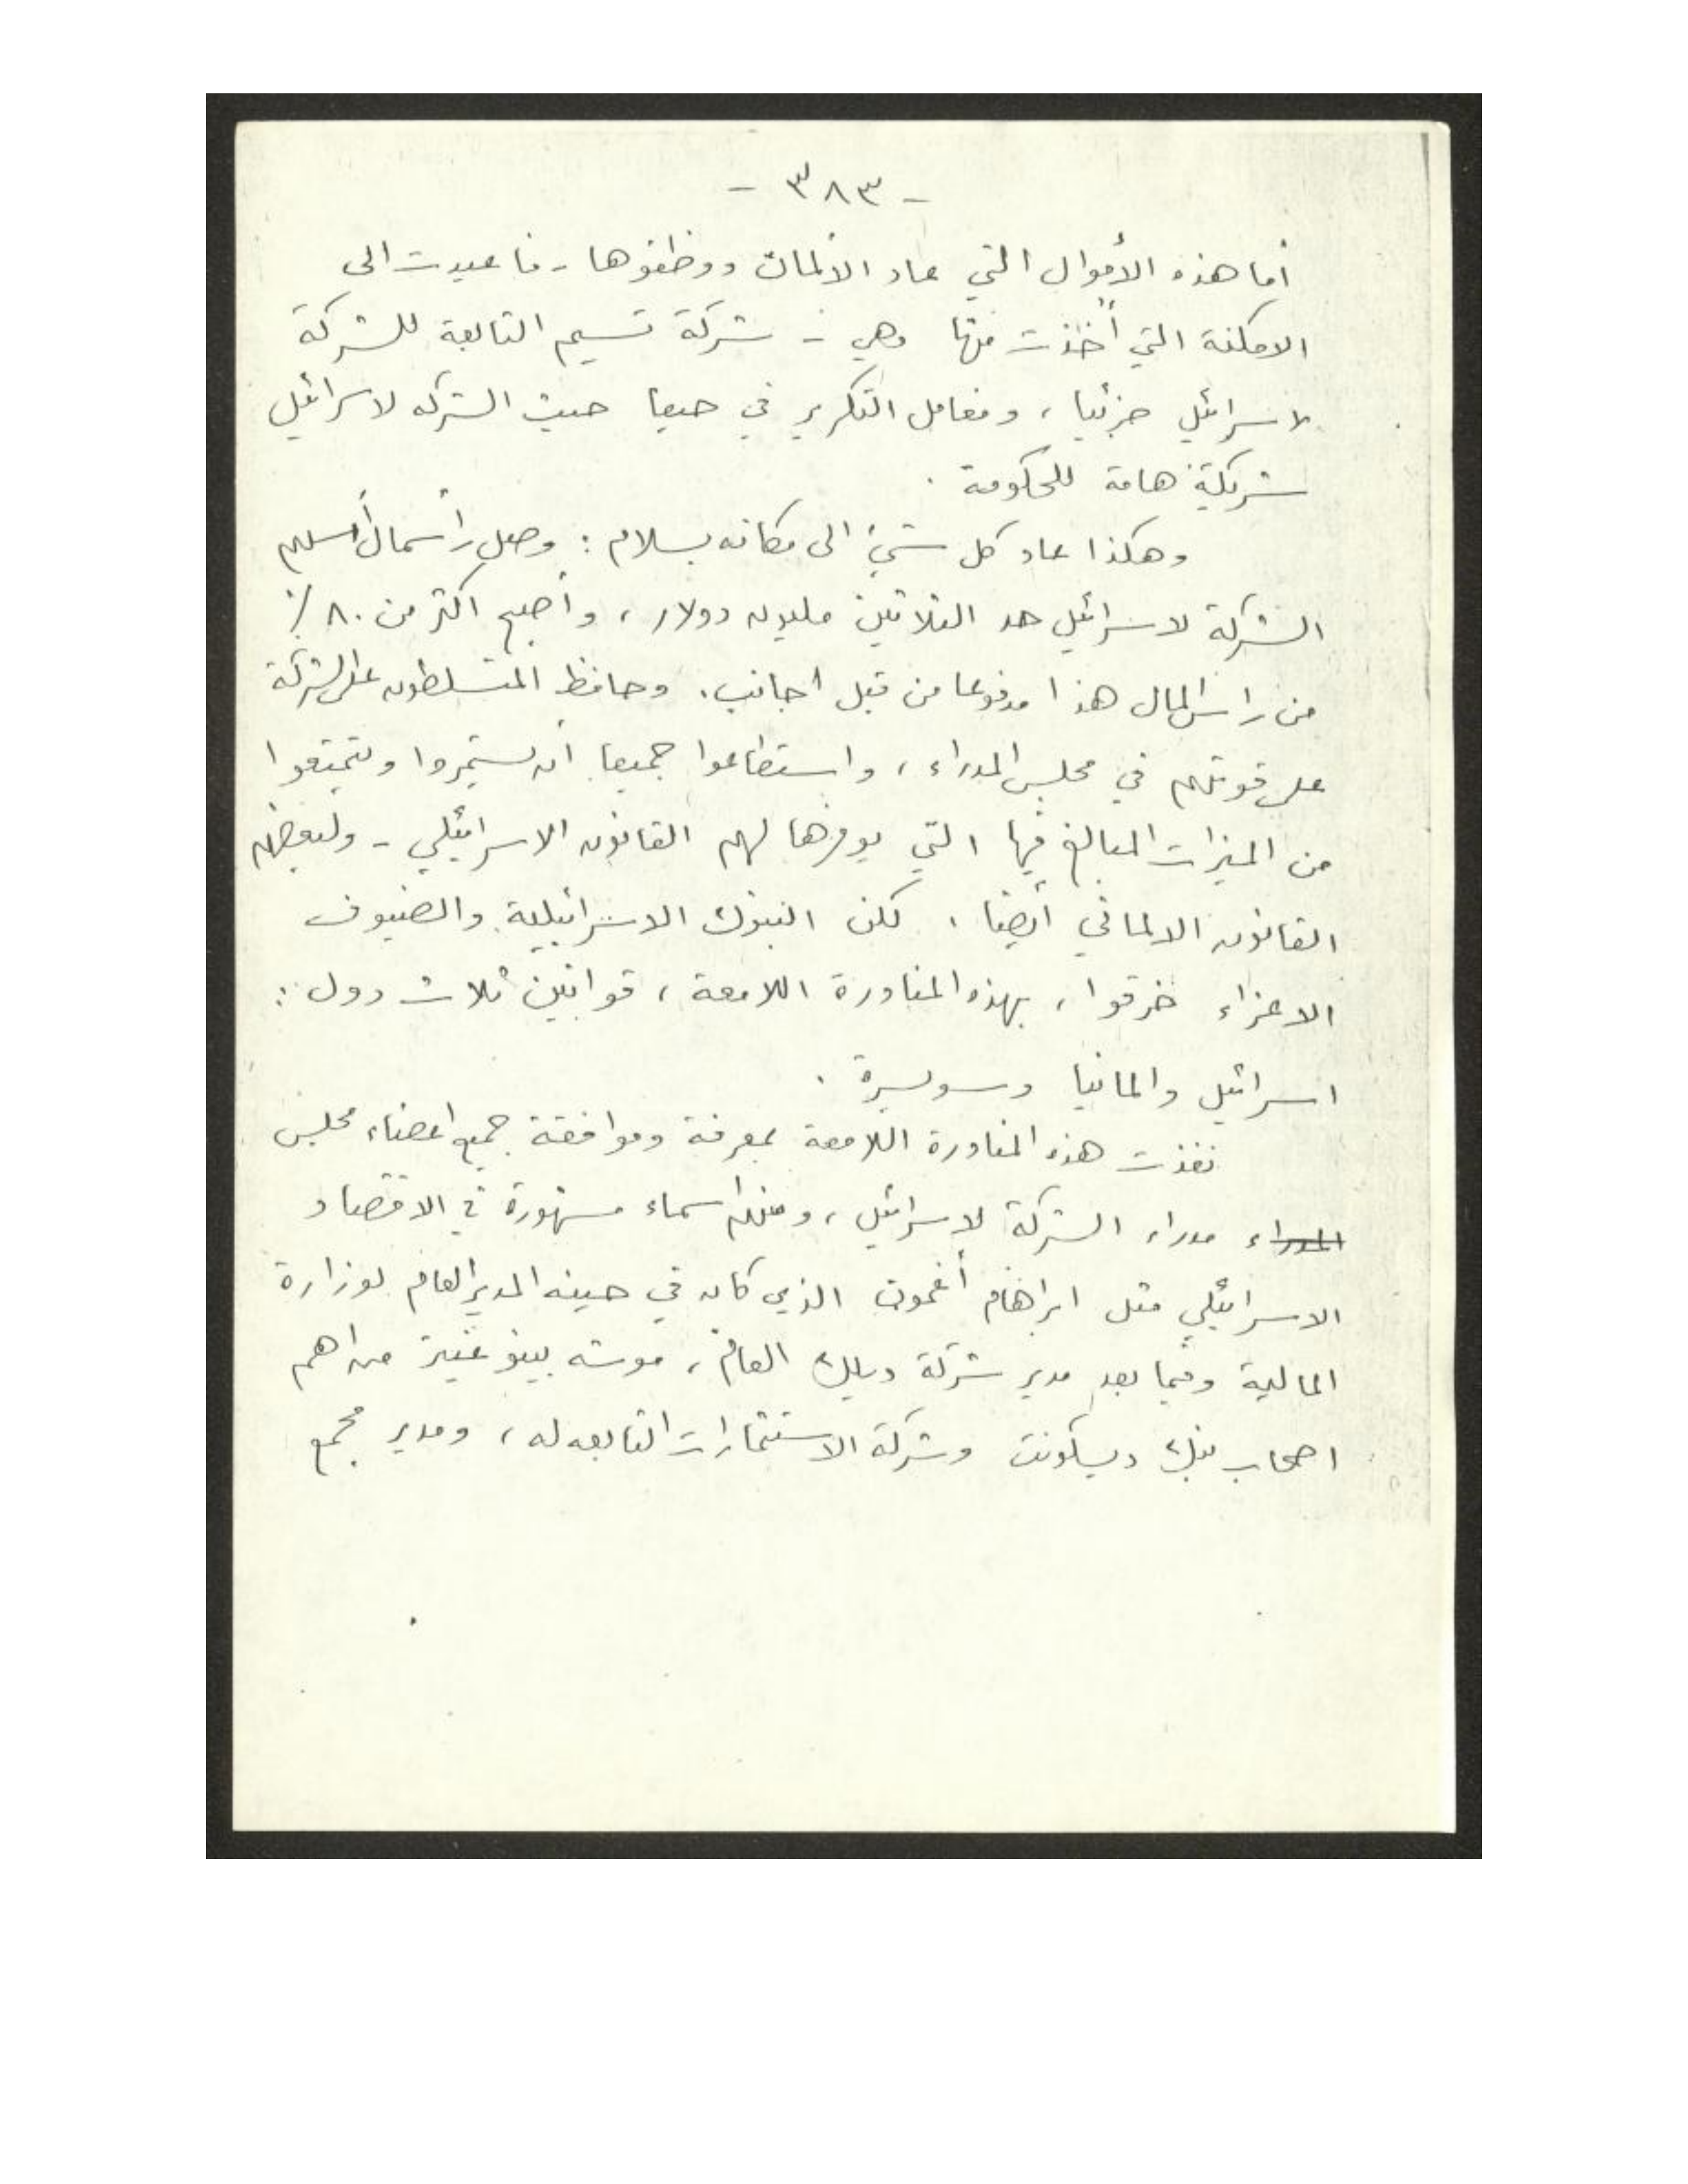 - ٣٨٣ -
أما هذه الأموال التي عاد الالمان ووظفوها - فاعيدت الى
الامكنة التي أخذت منها وهي - شركة تسيم التابعة للشركة
لاسرائيل جزئيا ، ومعامل التكرير في حيفا حيث الشركه لاسرائيل
شريكة هامة للحكومة .
وهكذا عاد كل شيء الى مكانه بسلام : وصل رأسمال أسهم
الشركة لاسرائيل حد الثلاثين مليون دولار ، وأصبح اكثر من ٨٠٪
من راس المال هذا مدفوعا من قبل اجانب . وحافظ المتسلطون على الشركة
على قوتهم في مجلس المدراء ، واستطاعوا جميعا أن يستمروا ويتمتعوا
من الميزات المبالغ فيها التي يوفرها لهم القانون الاسرائيلي - ولبعضهم
القانون الالماني أيضا . لكن البنوك الاسرائيلية والضيوف
الاعزاء خرقوا ، بهذه المناورة اللامعة ، قوانين ثلاث دول :
اسرائيل والمانيا وسويسرة .
نفذت هذه المناورة اللامعة بمعرفة وموافقة جميع اعضاء مجلس
المدراء مدراء الشركة لاسرائيل ، ومنهم اسماء مشهورة في الاقتصاد
الاسرائيلي مثل ابراهام أغمون الذي كان في حينه المدير العام لوزارة
المالية وفيما بعد مدير شركة ديلك العام ، موشه بينو غنيز من اهم
اصحاب بنك ديسكونت وشركة الاستثمارات التابعه له ، ومدير مجمع